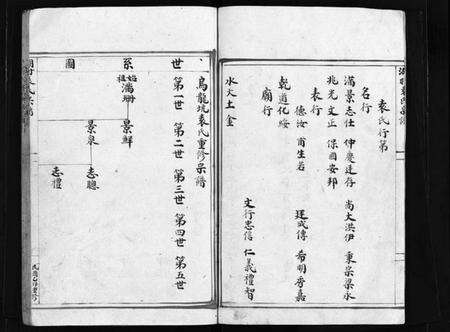 袁氏行第
名行
滿景志仕 仲慶廷存 尚大洪伊 東宗梁永
兆光文正 保國安邦
表行
德汝甫生若 廷成傳 希明秀嘉
乾道化綏
廟行
文行忠信 仁義禮智
水火土金
烏龍坑袁氏重修宗譜
世系圖
第一世 第二世 第三世 第四世 第五世
始祖滿珊 景鮮
景泉 志聰
志禮